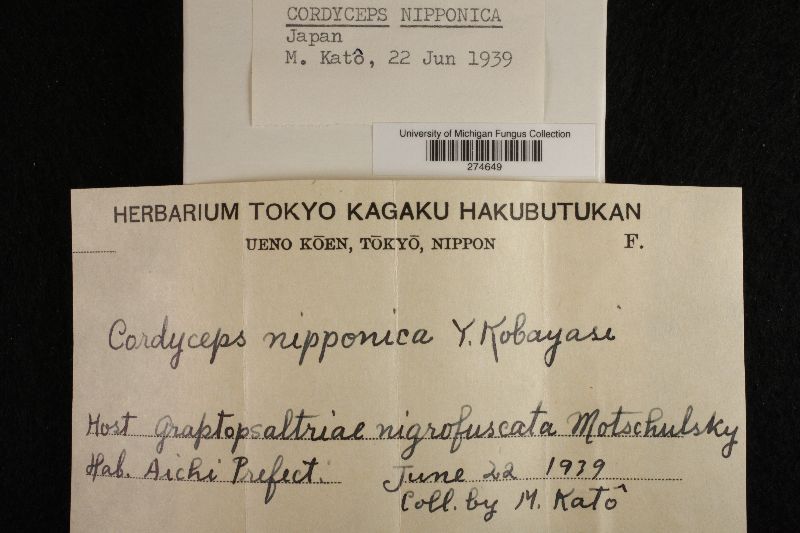 CORDYCEPS NIPPONICA
Japan
M. Katô, 22 Jun 1939
University of Michigan Fungus Collection
274649
HERBARIUM TOKYO KAGAKU HAKUBUTUKAN
UENO KŌEN, TŌKYŌ, NIPPON F.
Cordyceps nipponica Y. Kobayasi
Host Graptopsaltriae nigrofuscata Motschulsky
Hab. Aichi Prefect. June 22 1939
Coll. by M. Katô